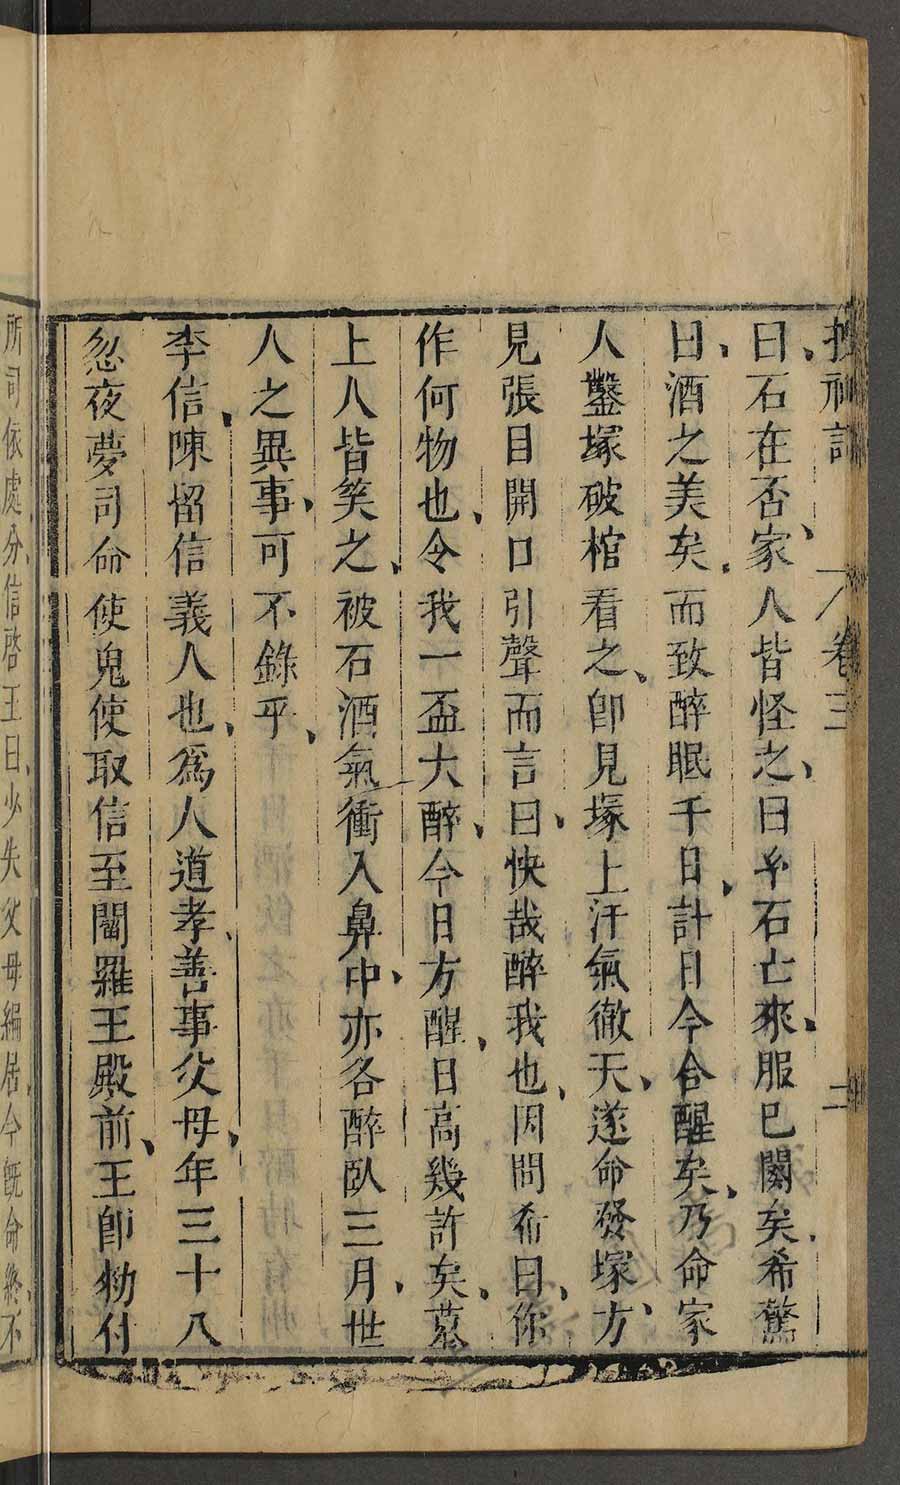 搜神記 卷三 二
曰石在否家人皆怪之曰玄石亡來服已闋矣希驚
曰酒之美矣而致醉眠千日計日今合醒矣乃命家
人鑿塚破棺看之卽見塚上汗氣徹天遂命發塚方
見張目開口引聲而言曰快哉醉我也因問希曰你
作何物也令我一盃大醉今日方醒日高幾許矣墓
上人皆笑之被石酒氣衝入鼻中亦各醉臥三月世
人之異事可不錄乎
李信陳留信義人也爲人道孝善事父母年三十八
忽夜夢司命使鬼使取信至閻羅王殿前王卽勑付
所司依處分信啓王曰少失父母編居今旣命終不